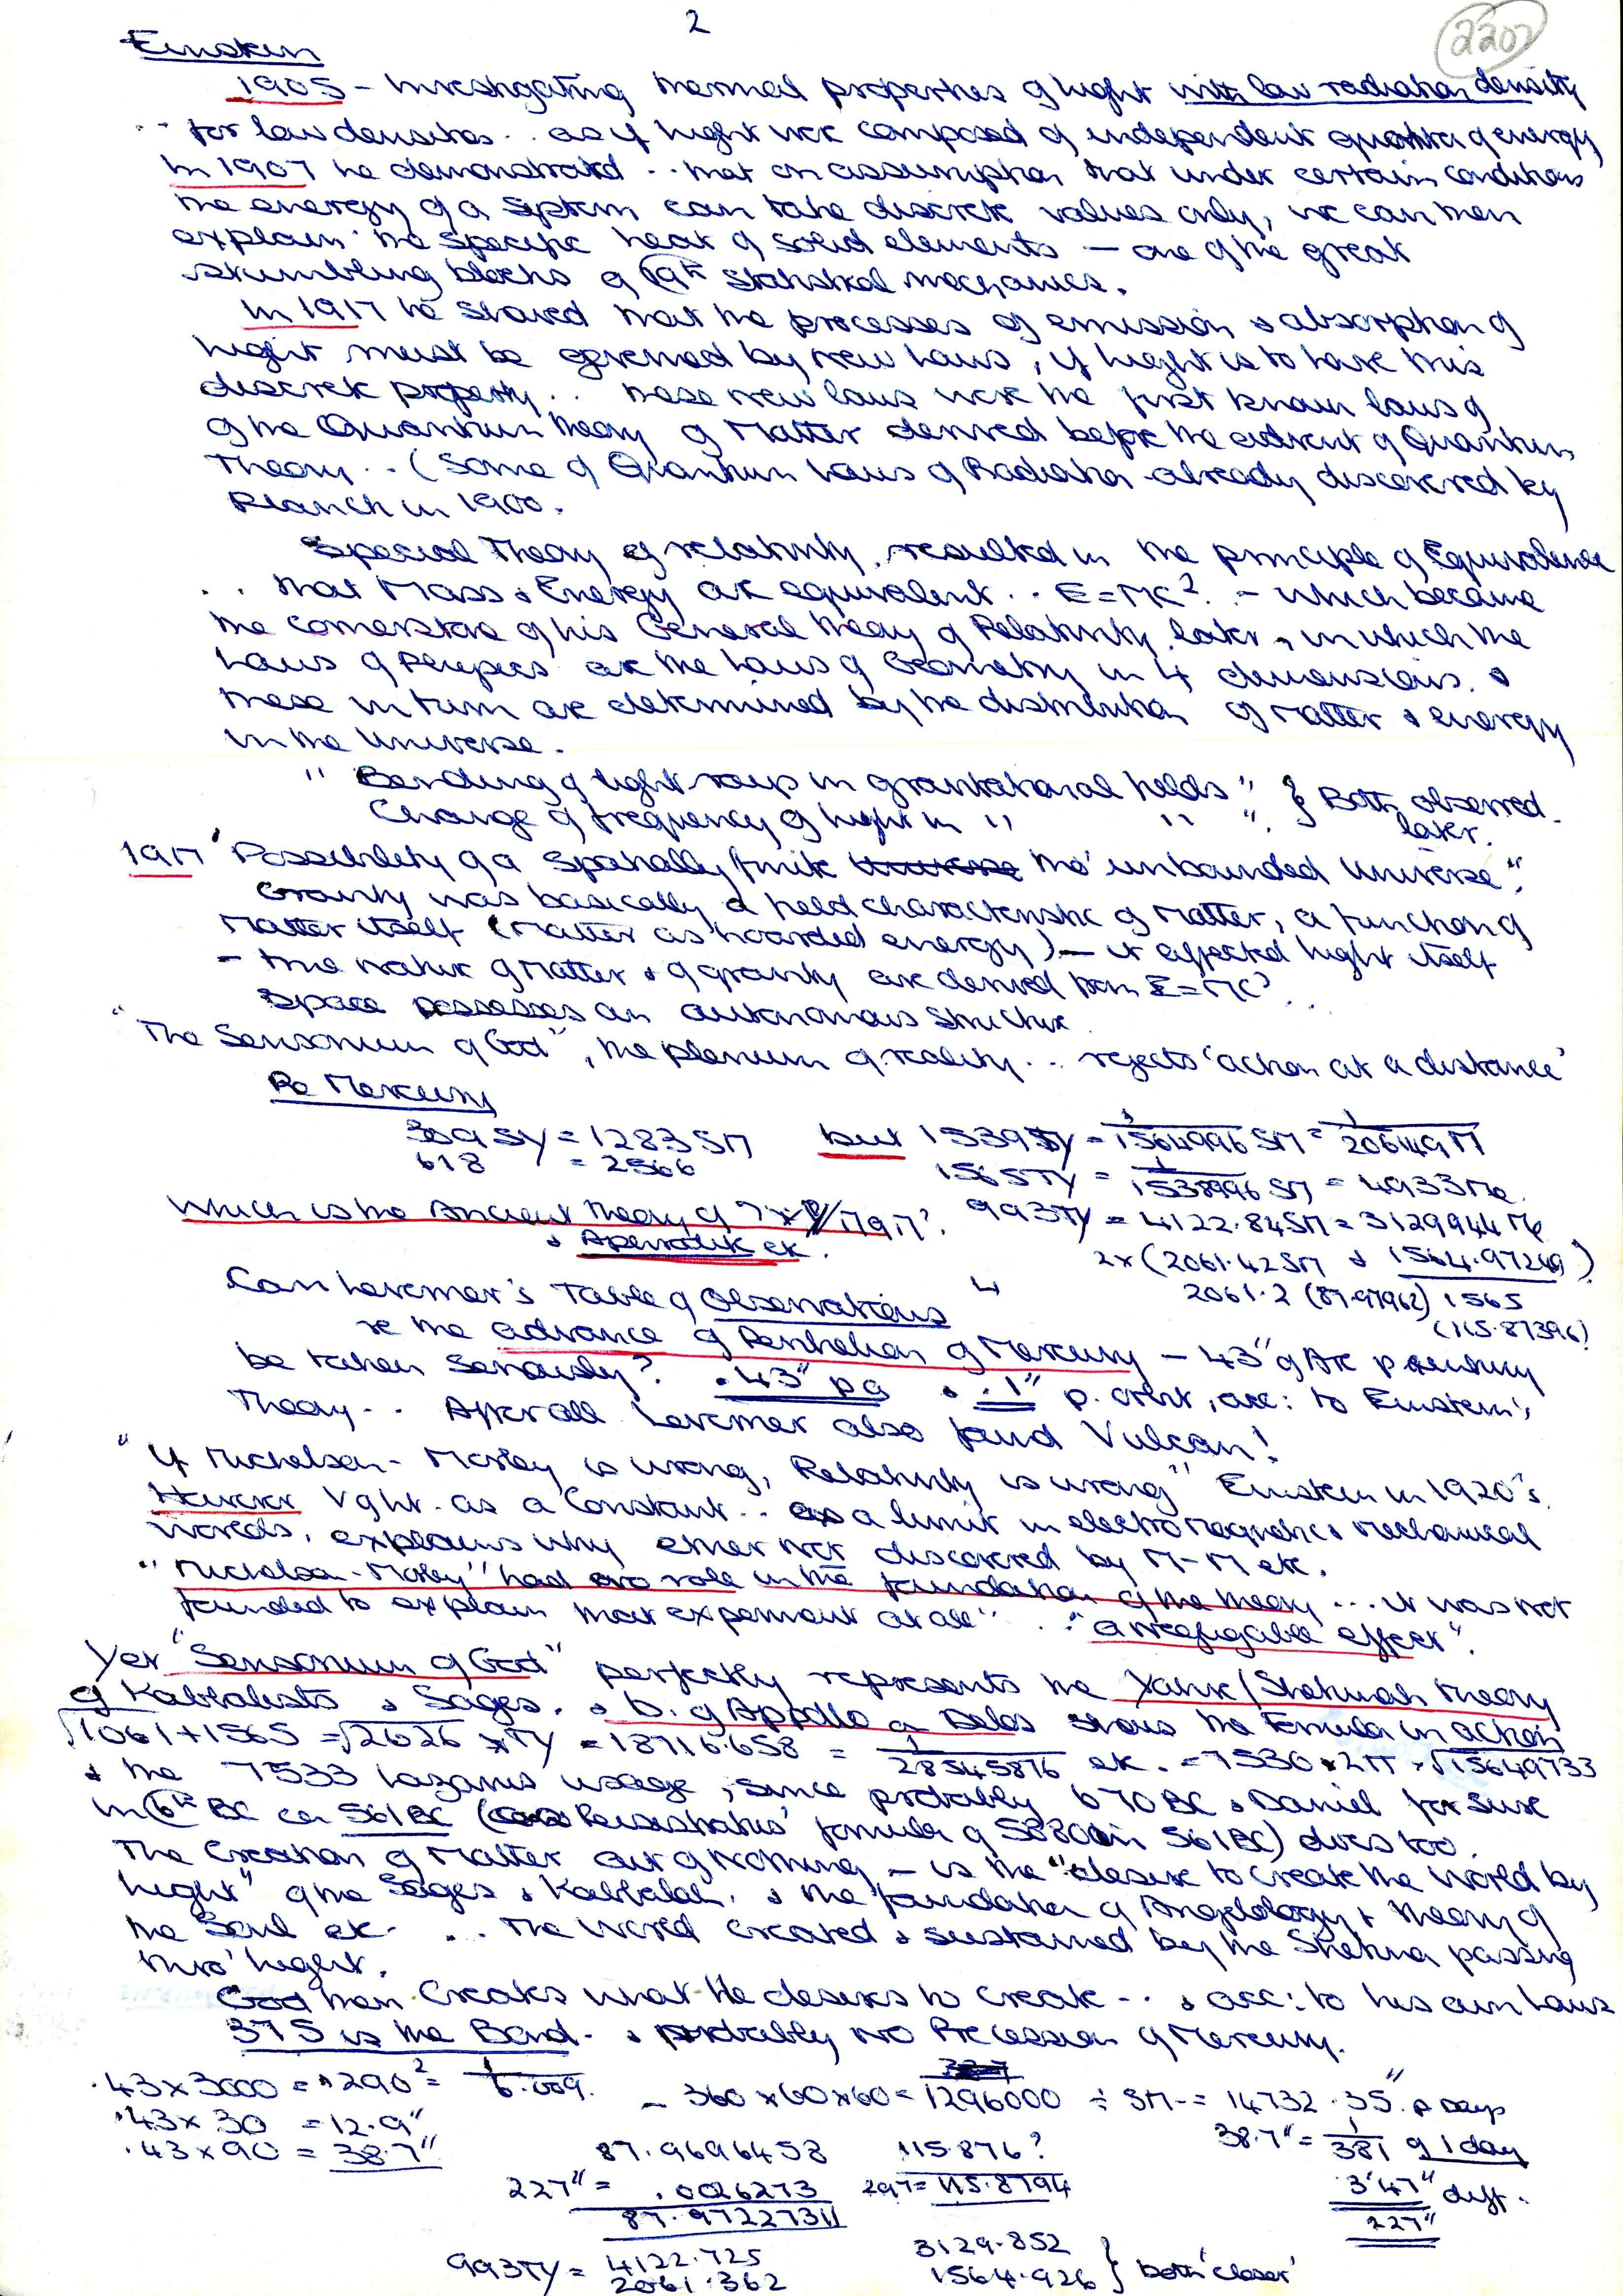 2
2202
Einstein
1905 - Investigating thermal properties of light with low radiation density
.. for low densities .. as if light were composed of independent quanta of energy
In 1907 he demonstrated .. that on assumption that under certain conditions
the energy of a system can take discrete values only, we can then
explain the specific heat of solid elements — one of the great
stumbling blocks of 19th Statistical Mechanics.
In 1917 he showed that the processes of emission & absorption of
light must be governed by new laws, if light is to have this
discrete property .. these new laws were the first known laws of
of the Quantum Theory of Matter derived before the advent of Quantum
Theory .. (Some of Quantum Laws of Radiation already discovered by
Planck in 1900.
Special Theory of relativity, resulted in the principle of Equivalence
.. that Mass & Energy are equivalent .. E=MC². - which became
the cornerstone of his General Theory of Relativity, later, in which the
Laws of Physics are the Laws of Geometry in 4 dimensions. &
these in turn are determined by the distribution of Matter & energy
in the Universe.
" Bending of light rays in gravitational fields " } Both observed
Change of frequency of light in " " ". later.
1917 'Possibility of a Spatially finite tho' unbounded Universe".
Gravity was basically a field characteristic of Matter, a function of
Matter itself (Matter as hoarded energy) — it affected light itself
- true nature of Matter & of gravity are derived from E=MC²..
Space possesses an autonomous Structure.
"The Sensorium of God", the plenum of reality .. rejects 'action at a distance'
Re Mercury
309 SY = 1283 SM but 1539SY = 1/1564996 SM = 1/2061497
618 = 2566 1565TY = 1/1538996 SM = 4933Me.
Which is the Ancient Theory of 993TY = 4122.84SM = 3129944 Me
& Aperiodik etc. 2x (2061.42SM & 1564.97249)
2061.2 (87.97962) 1565
(115.87396)
Can Leverrier's Table of Observations
re the advance of Perihelion of Mercury - 43" of Arc p century
be taken seriously? .43" pa & .1" p. orbit, acc: to Einstein's
Theory .. After all Leverrier also found Vulcan!
"If Michelson-Morley is wrong, Relativity is wrong" Einstein in 1920's.
However V ght. as a Constant .. as a limit in electro Magnetic & Mechanical
worlds, explains why ether not discovered by M-M etc.
"Michelson-Morley" had no role in the foundation of the theory ... it was not
founded to explain that experiment at all" .. "a negligable effect".
Yet "Sensorium of God" perfectly represents the Yahve/Shekinah theory
of Kabbalists & Sages. & D. of Apollo at Delos shows the Formula in action
√1061+1565 = √2626 x TY = 18716.658 = 1/28545876 etc. = 7530 x 2π . √15649733
& the 7533 Lazarus usage, since probably 670BC & Daniel for sure
in 6th BC on 561BC (Peisistratus' formula of 5880 in 561BC) does too.
The Creation of Matter out of Nothing — is the "desire to create the World by
light" of the Sages & Kabbalah. & the foundation of Angelology & theory of
the Soul etc .. The World created & sustained by the Shekina passing
thro' light.
God then creates what He desires to create .. & acc: to his own Laws
375 is the Band. & probably no Precession of Mercury.
.43 x 3000 = 1290² = 1/6.009. - 360 x 60 x 60 = 1296000 ÷ SM = 14732.35" p Days
.43 x 30 = 12.9"
.43 x 90 = 38.7" 38.7" = 1/381 of 1 day
87.9696458 115.876?
227" = .0026273 297= 115.8794 3'47" diff.
87.97227311 227"
993TY = 4122.725 3129.852 } both 'closer'
2061.362 1564.926